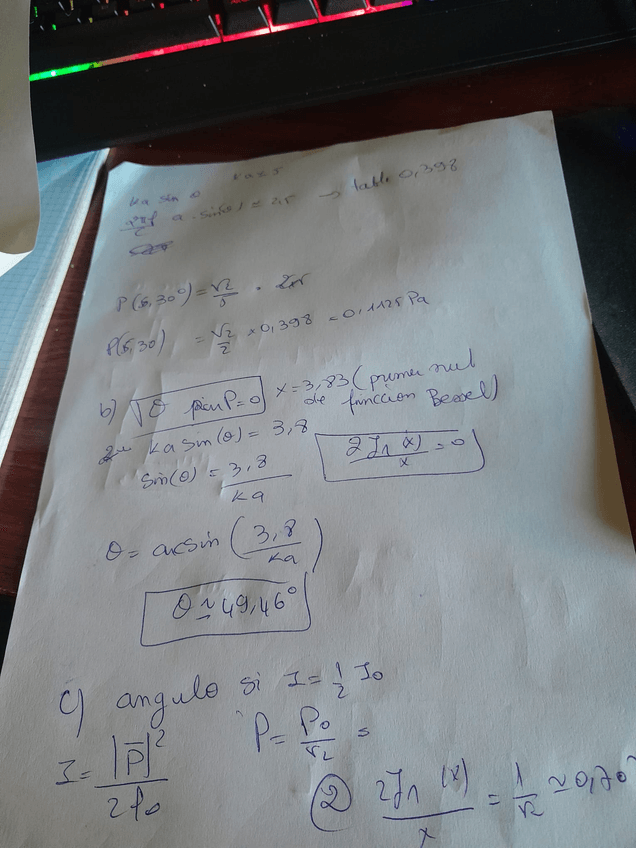 ka = 5
ka sin θ
2πf/c a · sin(θ) = 2,5 → tabla 0,398
P(5,30°) = √2/5 ·
P(5,30) = √2/5 × 0,398 = 0,1125 Pa
b) θ P=0 x=3,83 (primer nul
de funccion Bessel)
ka sin(θ) = 3,8
sin(θ) = 3,8/ka
2J1(x)/x = 0
θ = arcsin (3,8/ka)
θ ≃ 49,46°
c) angulo si I = 1/2 I0
I = |P̄|²/2ρ0
P = P0/√2 =
② 2J1(x)/x = 1/√2 ≃ 0,70